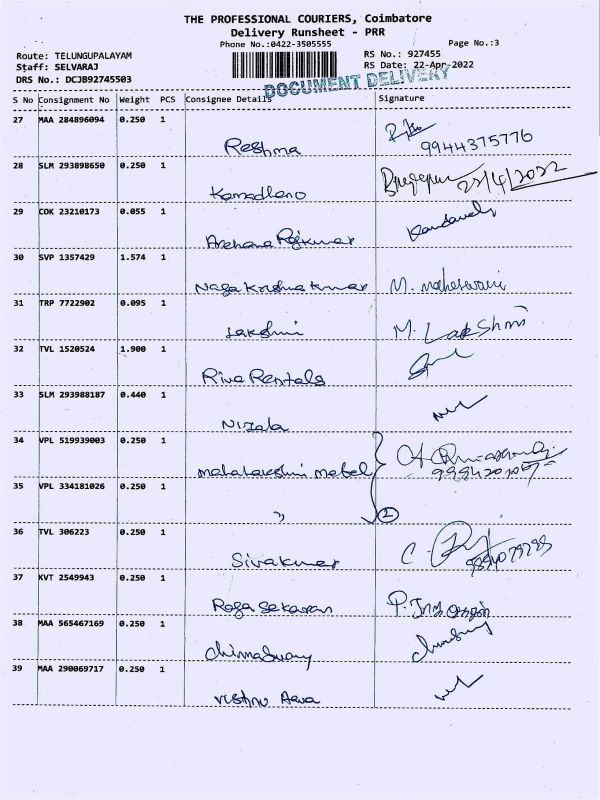 THE PROFESSIONAL COURIERS, Coimbatore
Delivery Runsheet - PRR
Phone No.:0422-3505555
Page No.:3
Route: TELUNGUPALAYAM
RS No.: 927455
Staff: SELVARAJ
RS Date: 22-Apr-2022
DRS No.: DCJB92745503
DOCUMENT DELIVERY
S No Consignment No Weight PCS Consignee Details Signature
27 MAA 284896094 0.250 1
Reshma 9944375776
28 SLM 293898650 0.250 1
Kamadheno 22/4/2022
29 COK 23210173 0.055 1
Archana Rajkumar
30 SVP 1357429 1.574 1
Naga Krishna Kumar M. maheswari
31 TRP 7722902 0.095 1
Lakshmi M. Lakshmi
32 TVL 1520524 1.900 1
Riva Rentals
33 SLM 293988187 0.440 1
Nirjala
34 VPL 519939003 0.250 1
mahalakshmi metal
35 VPL 334181026 0.250 1
" 2
36 TVL 306223 0.250 1
Sivakumar C.
37 KVT 2549943 0.250 1
Raja Sekaran
38 MAA 565467169 0.250 1
Chinnaswamy
39 MAA 290069717 0.250 1
Vishnu